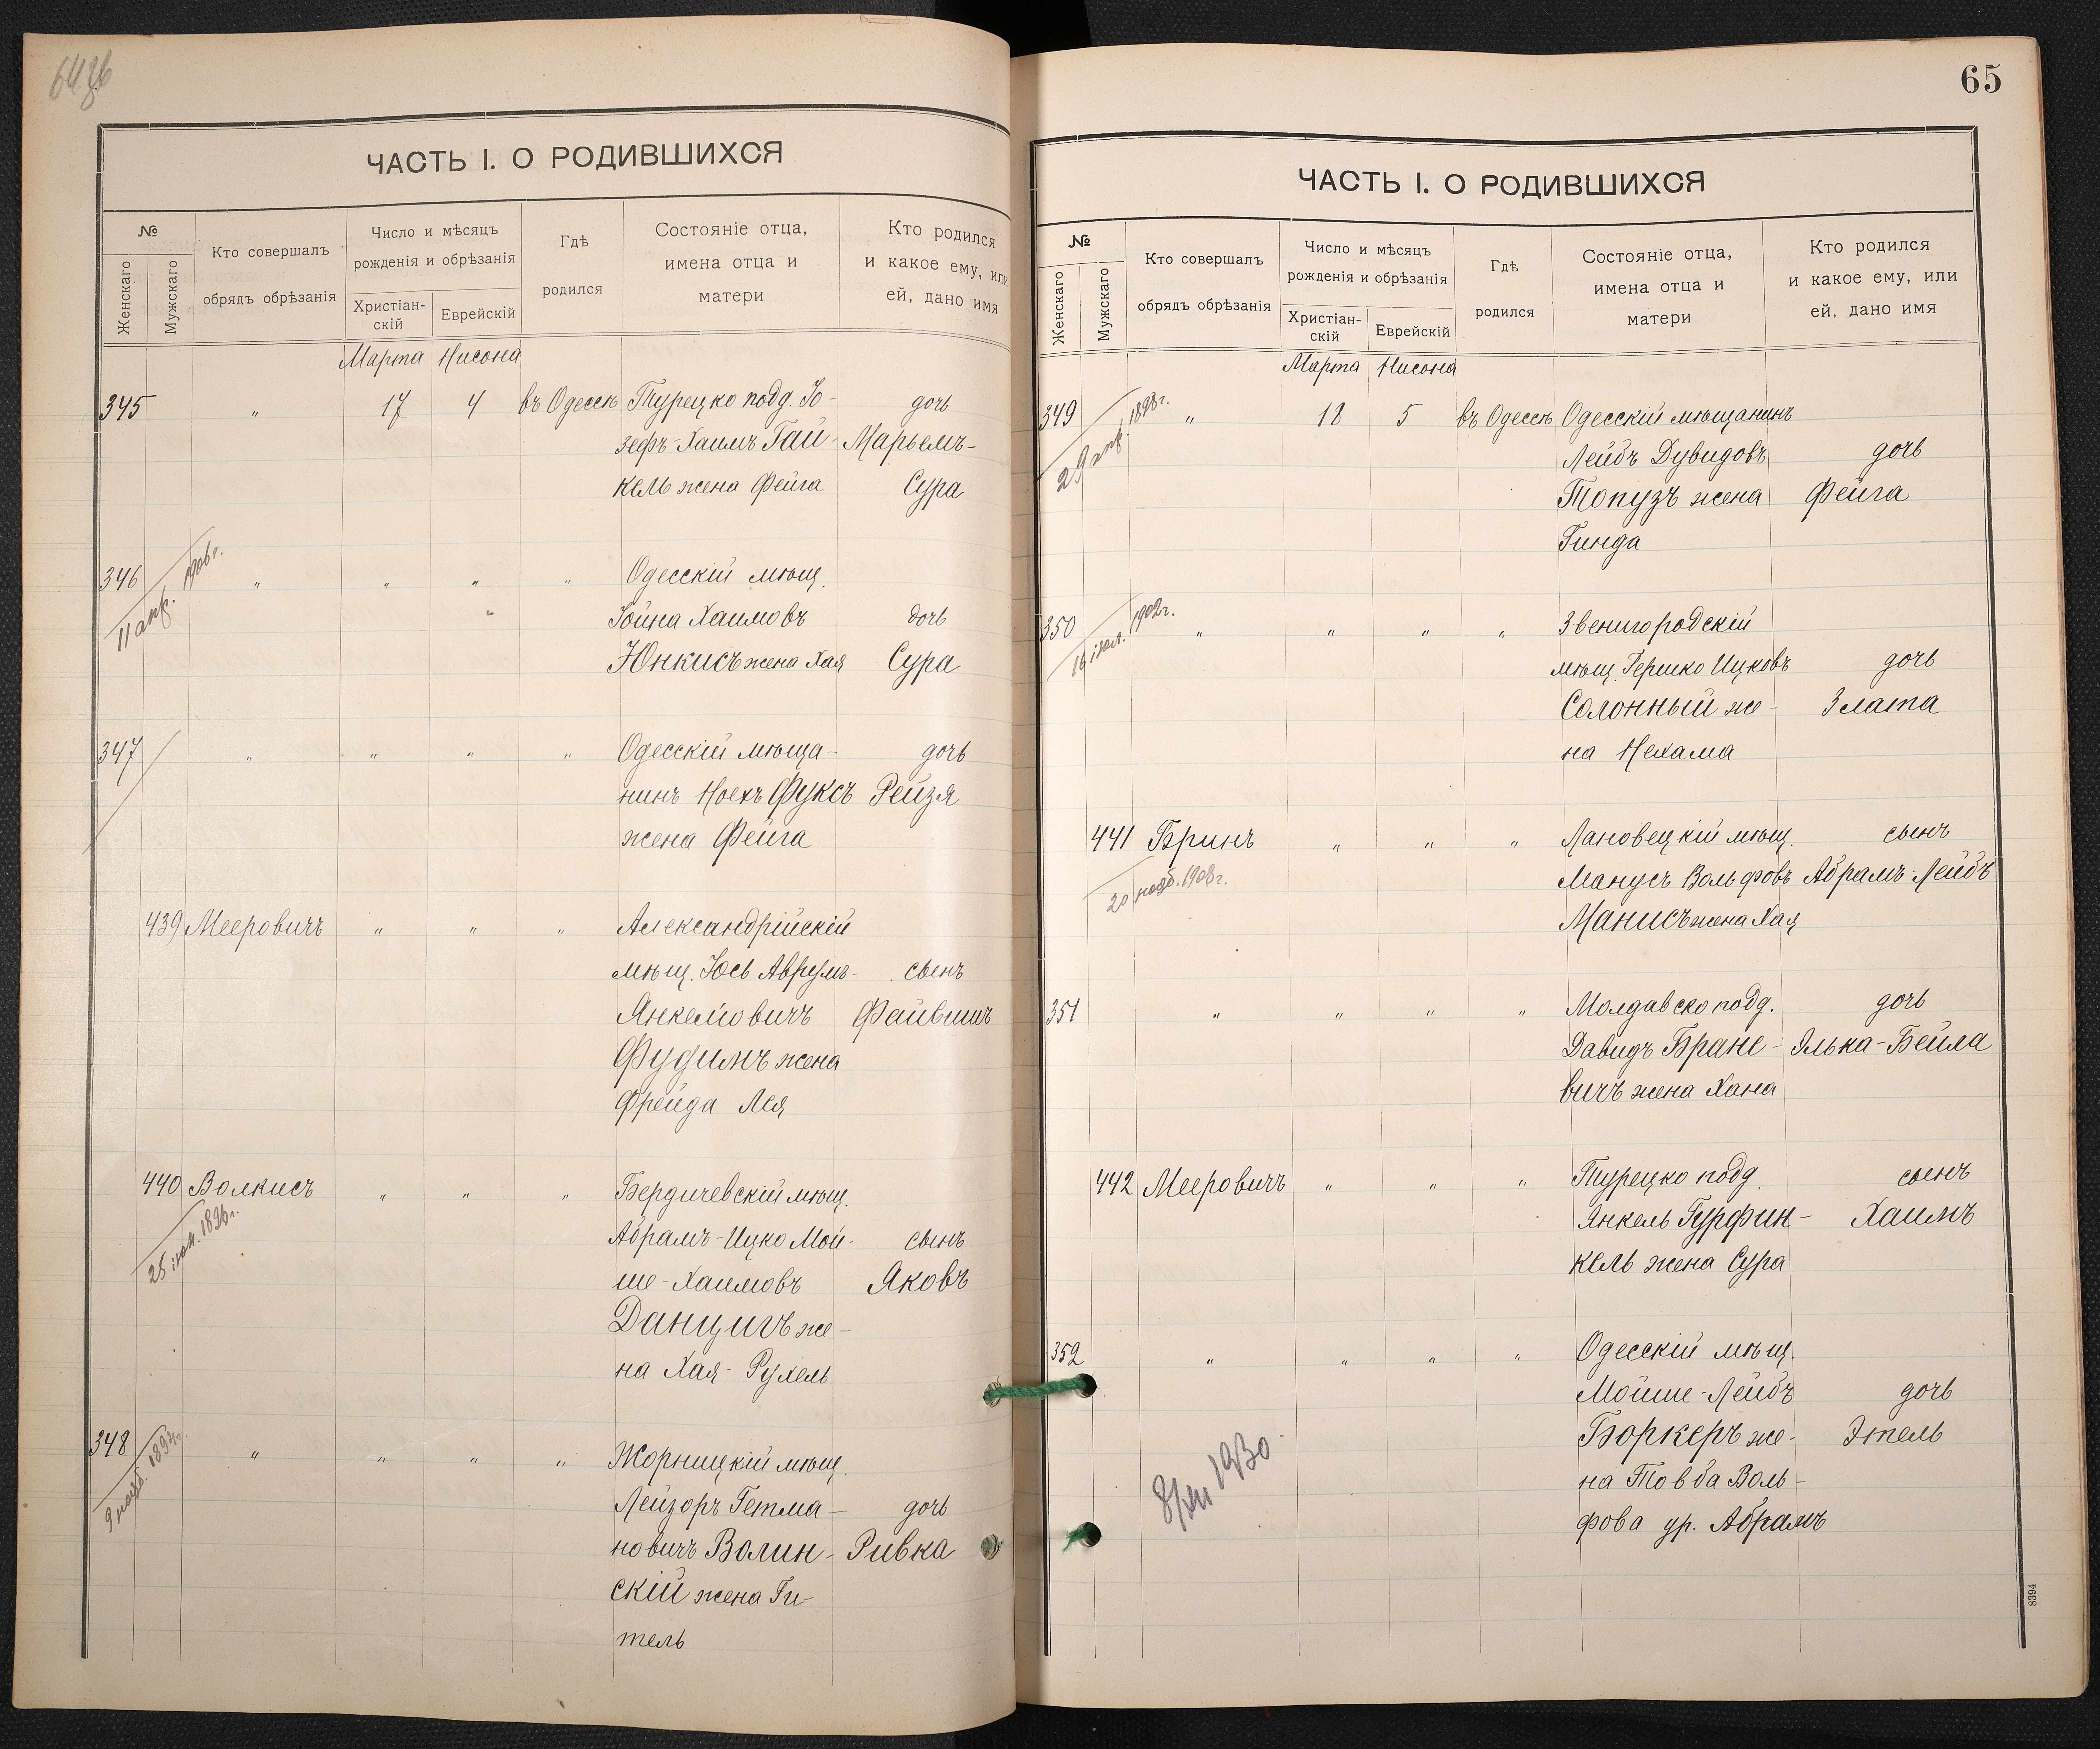 ЧАСТЬ I. О РОДИВШИХСЯ
№
Женскаго
Мужскаго
Кто совершалъ
обрядъ обрѣзанія
Число и мѣсяцъ
рожденія и обрѣзанія
Христіан-
скій
Еврейскій
Гдѣ
родился
Состояніе отца,
имена отца и
матери
Кто родился
и какое ему, или
ей, дано имя
Марта Нисона
345 " 17 4 въ Одессѣ Турецко подд. Іо- дочь
зефъ-Хаимъ Гай- Марьемъ-
кель жена Фейга Сура
346 " " " " Одесскій мѣщ.
11 апр. 1906 г.
Іойна Хаимовъ дочь
Юнкисъ жена Хая Сура
347 " " " " Одесскій мѣща- дочь
нинъ Ноехъ Фуксъ Рейзя
жена Фейга
439 Мееровичъ " " " Александрійскій
мѣщ. Іось Аврумъ- сынъ
Янкеліовичъ Файвишъ
Фудимъ жена
Фрейда Лея
440 Волкисъ " " " Бердичевскій мѣщ.
25 іюн. 1896 г.
Абрамъ-Ицко Мой- сынъ
ше-Хаимовъ Яковъ
Данцигъ же-
на Хая-Рухель
348 " " " " Жорнищкій мѣщ.
9 нояб. 1897 г.
Лейзоръ Гетма- дочь
новичъ Волин- Ривка
скій жена Ги-
тель
65
ЧАСТЬ I. О РОДИВШИХСЯ
№
Женскаго
Мужскаго
Кто совершалъ
обрядъ обрѣзанія
Число и мѣсяцъ
рожденія и обрѣзанія
Христіан-
скій
Еврейскій
Гдѣ
родился
Состояніе отца,
имена отца и
матери
Кто родился
и какое ему, или
ей, дано имя
Марта Нисона
349 " 18 5 въ Одессѣ Одесскій мѣщанинъ
29 апр. 1898 г.
Лейбъ Дувидовъ дочь
Топузъ жена Фейга
Гинда
350 " " " " Звенигородскій
16 іюл. 1902 г.
мѣщ. Гершко Ицковъ дочь
Солонный же- Злата
на Нехама
441 Бринъ " " " Лановецкій мѣщ. сынъ
20 нояб. 1908 г.
Манусъ Вольфовъ Абрамъ-Лейбъ
Манисъ жена Хая
351 " " " " Молдавско подд. дочь
Давидъ Бране- Элька-Бейла
вичъ жена Хана
442 Мееровичъ " " " Турецко подд. сынъ
Янкель Гурфин- Хаимъ
кель жена Сура
352 " " " " Одесскій мѣщ.
Мойше-Лейбъ дочь
Боркеръ же- Этель
на Товба Воль-
фова ур. Абрамъ
1930
8394